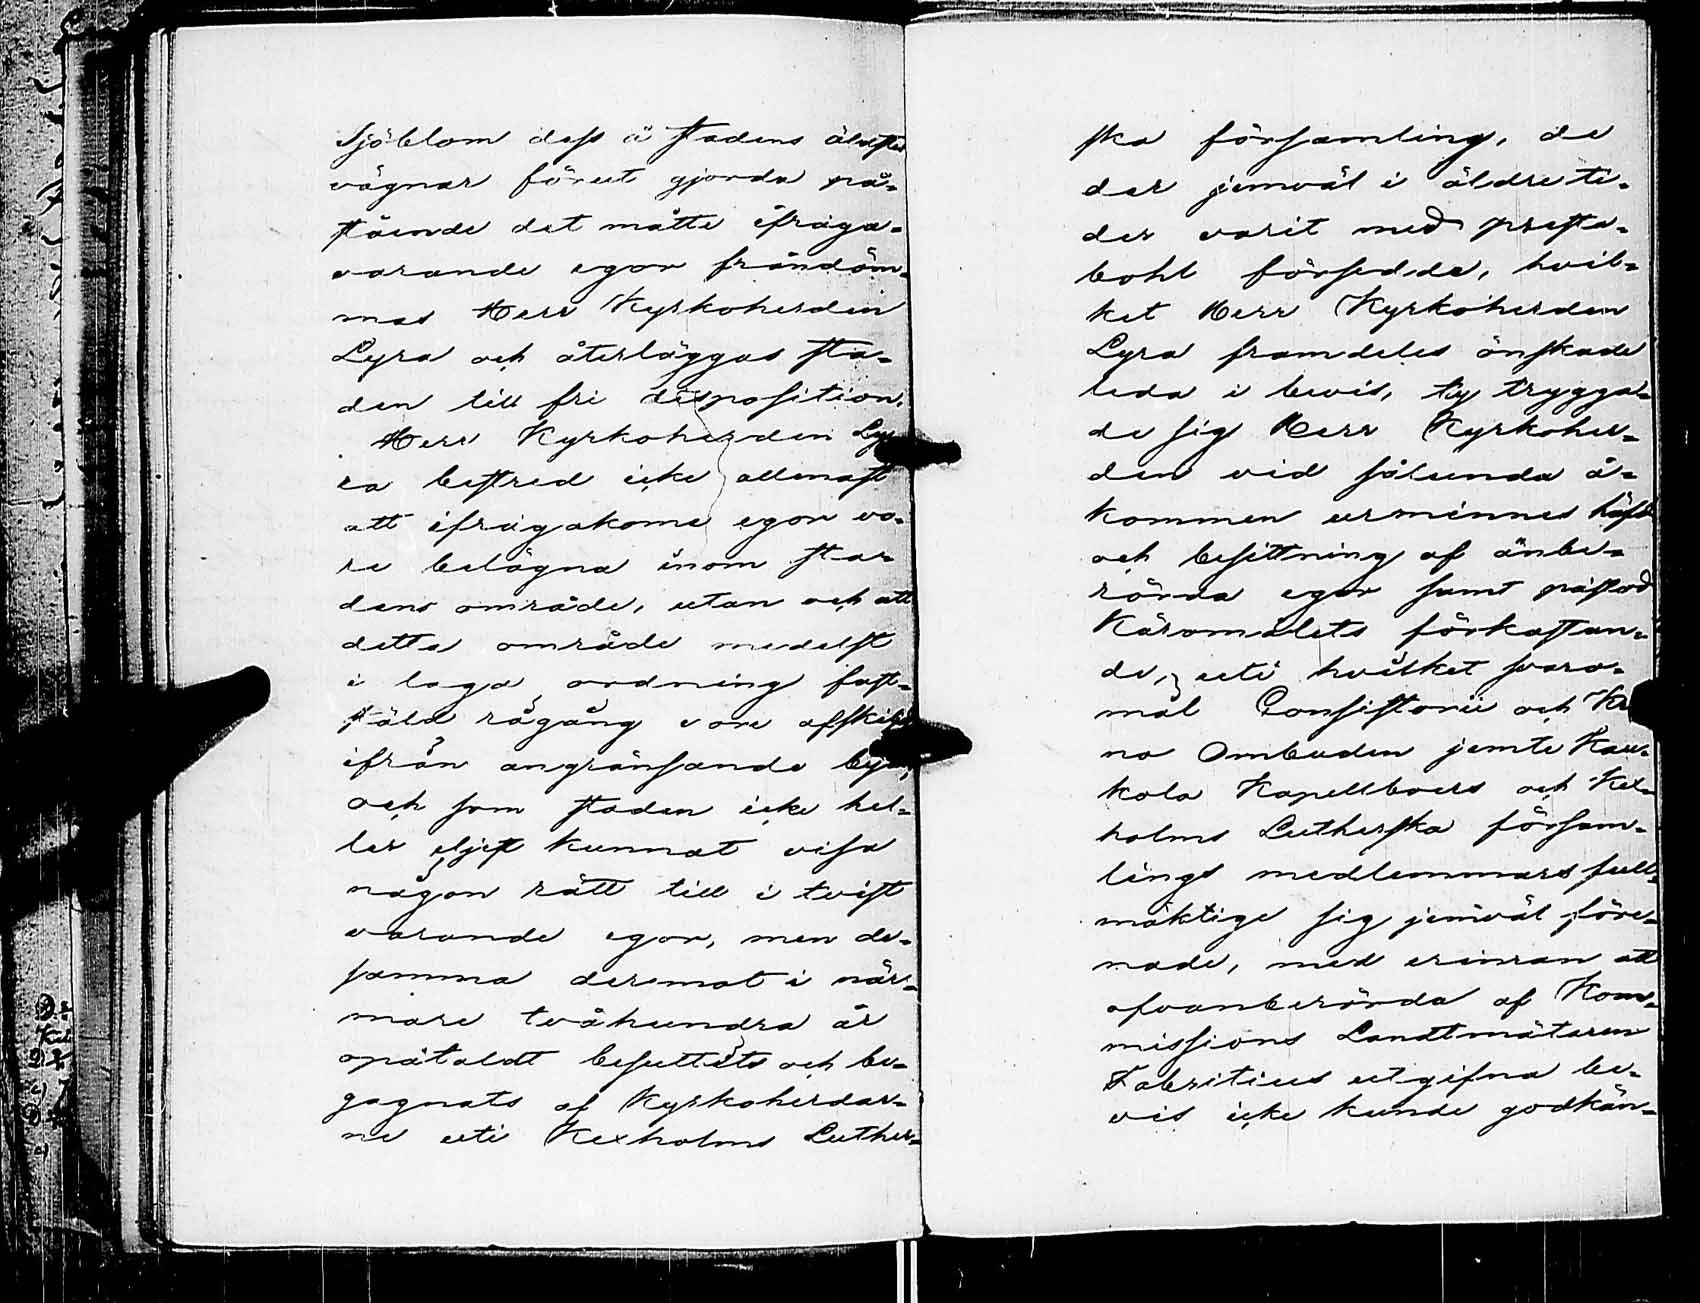 Sjöblom dess å stadens äldstes
vägnar förut gjorda på-
stående det måtte ifråga-
varande egor fråndöm-
mas Herr Kyrkoherden
Lyra och återläggas sta-
den till fri disposition.
Herr Kyrkoherden Ly-
ra bestred icke allenast
att ifrågakomne egor vo-
re belägna inom sta-
dens område, utan och att
detta område medelst
i laga ordning fast-
stäld rågång vore afskildt
ifrån angränsande byar,
och som staden icke hel-
ler eljest kunnat visa
någon rätt till i tvist
varande egor, men de-
samma deremot i när-
mare tvåhundra år
opåtaldt besuttits och be-
gagnats af Kyrkoherdar-
ne uti Kexholms Luther-
ska församling, de
der jemväl i äldre ti-
der varit med presta-
bohl försedde, hvil-
ket Herr Kyrkoherden
Lyra framdeles önskade
leda i bevis, ty trygga-
de sig Herr Kyrkoher-
den vid sålunda å-
kommen urminnes häfd
och besittning af änbe-
rörda egor samt påstod
Käromålets förkastan-
de, uti hvilket svaro-
mål Consistorii och Kro
no Ombuden jemte Kau-
kola Kapellboers och Kex-
holms Lutherska försam-
lings medlemmars full-
mäktige sig jemväl före-
nade, med erinran att
ofvanberörda af Kom-
missions Landtmätaren
Fabritius utgifna be-
vis icke kunde godkän-